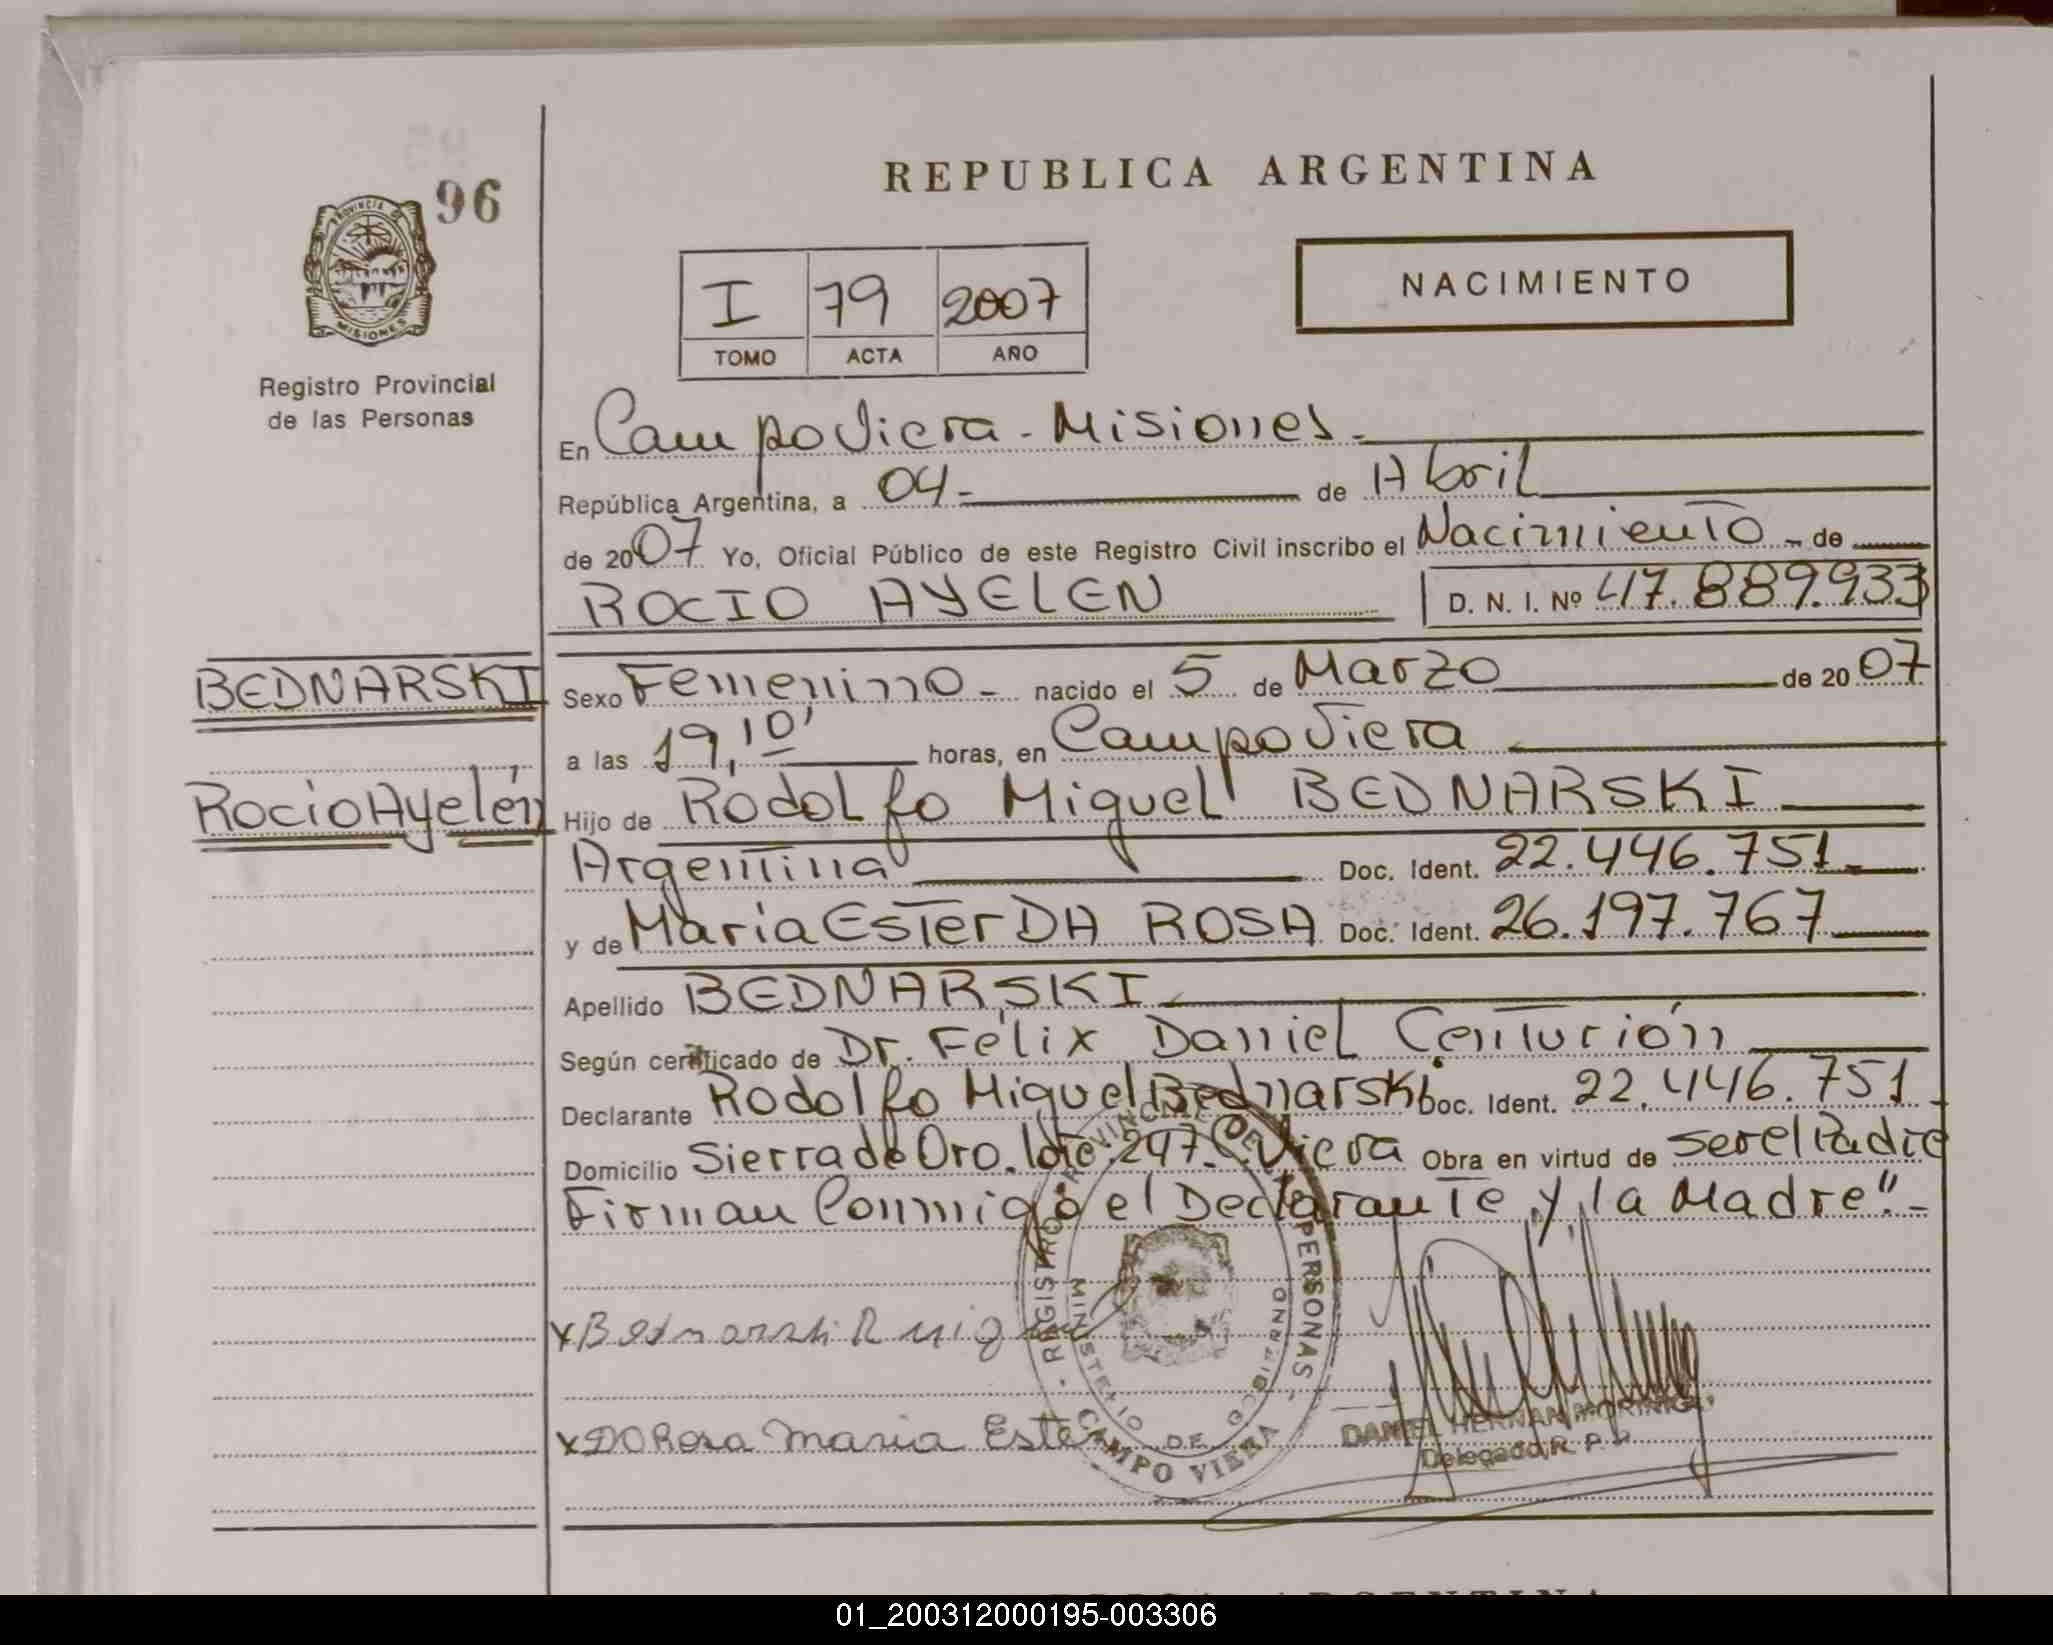 REPUBLICA ARGENTINA
96
PROVINCIA DE
MISIONES
Registro Provincial
de las Personas
NACIMIENTO
I 79 2007
TOMO ACTA AÑO
En Campo Viera - Misiones -
República Argentina, a 04 - de Abril
de 2007 Yo, Oficial Público de este Registro Civil inscribo el Nacimiento - de
ROCIO AYELEN D. N. I. Nº 47.889.933
BEDNARSKI
Rocío Ayelén
Sexo Femenino - nacido el 5 de Marzo de 2007
a las 19,10' horas, en Campo Viera
Hijo de Rodolfo Miguel BEDNARSKI
Argentina Doc. Ident. 22.446.751 -
y de María Ester DA ROSA Doc. Ident. 26.197.767
Apellido BEDNARSKI -
Según certificado de Dr. Félix Daniel Centurión
Declarante Rodolfo Miguel Bednarski Doc. Ident. 22.446.751 -
Domicilio Sierra de Oro. lote: 247. C. Viera Obra en virtud de ser el Padre
Firman Conmigo el Declarante y la Madre". -
REGISTRO PROVINCIAL DE LAS PERSONAS - CAMPO VIERA -
MINISTERIO DE GOBIERNO
x Bednarski R
x DA Rosa Maria Ester
DANIEL HERNAN MORINIGO
Delegado R. P. P.
01_200312000195-003306